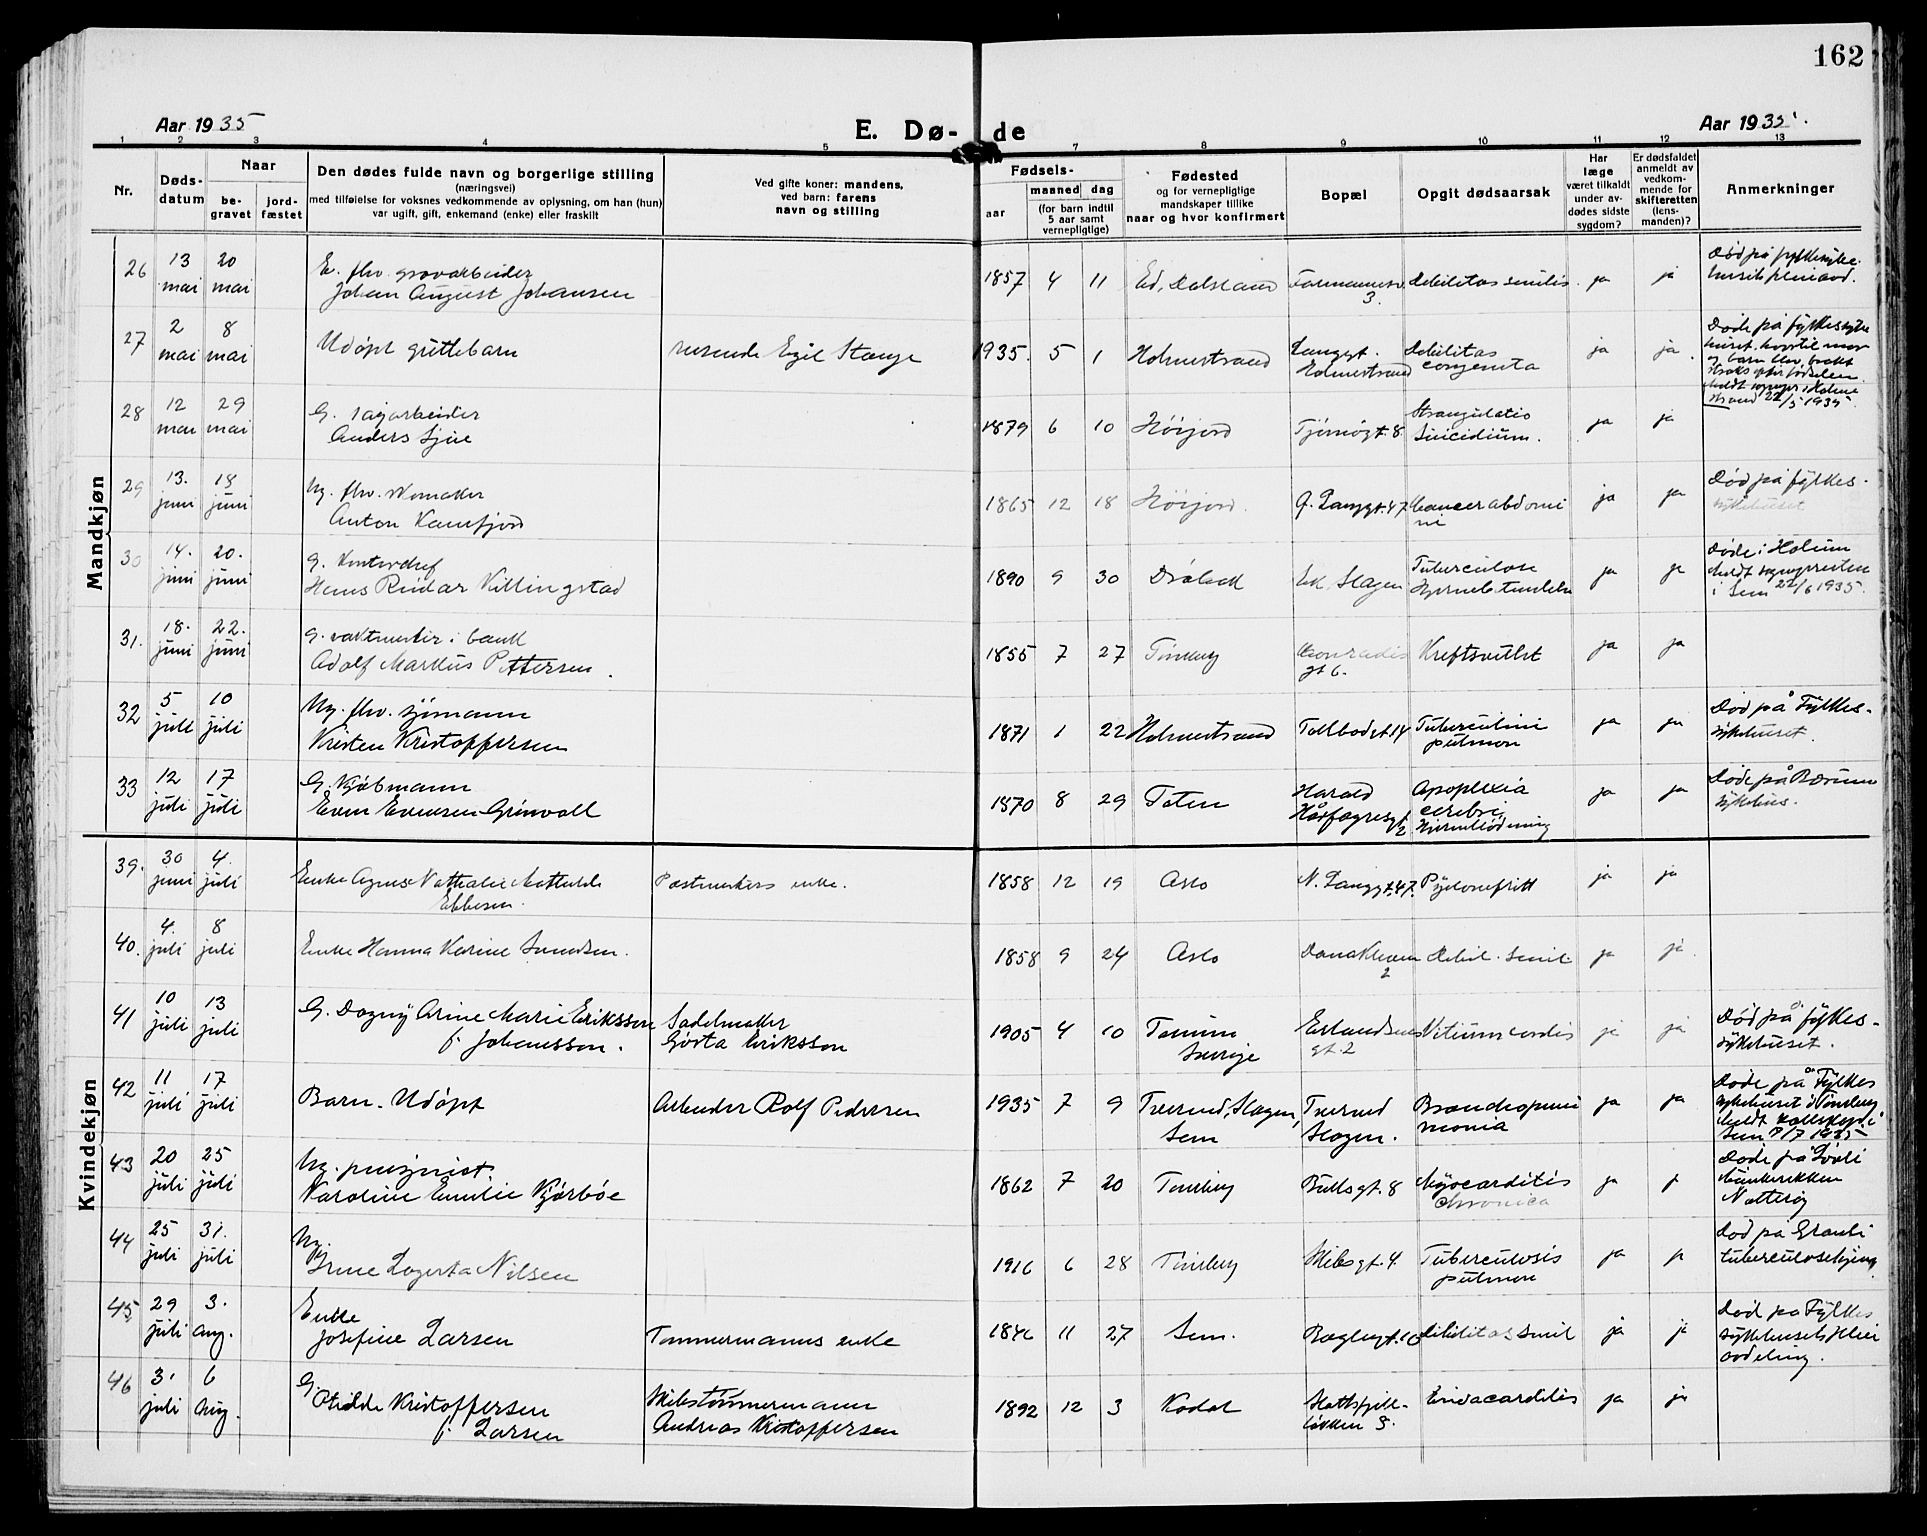 162
Aar 1935
E. Dø- de
Aar 1935.
1 2 3 4 5 7 8 9 10 11 12 13
Nr.
Døds-
datum
Naar
be-
gravet
jord-
fæstet
Den dødes fulde navn og borgerlige stilling
(næringsvei)
med tilføielse for voksnes vedkommende av oplysning, om han (hun)
var ugift, gift, enkemand (enke) eller fraskilt
Ved gifte koner: mandens,
ved barn: farens
navn og stilling
Fødsels-
aar
maaned dag
(for barn indtil
5 aar samt
vernepligtige)
Fødested
og for vernepligtige
mandskaper tillike
naar og hvor konfirmert
Bopæl
Opgit dødsaarsak
Har
læge
været tilkaldt
under av-
dødes sidste
sygdom?
Er dødsfaldet
anmeldt av
vedkom-
mende for
skifteretten
(lens-
manden)?
Anmerkninger
Mandkjøn
26 13 mai 20 mai
E. fhv. gravarbeider
Johan August Johansen
1857 4 11 Ed, Dalsland 3. debilitas senilis ja ja
Død på
27 2 mai 8 mai
Udøpt guttebarn
reisende Egil Stange
1935. 5 1 Holmestrand Langgt. Holmestrand Debilitas congenita ja ja.
Døde på fylkessyke
huset, hvortil mor
og barn blev bragt
straks efter fødselen.
Meldt sognepr. i Holme
strand 22/5 1935.
28 12 mai 29 mai
G. sagarbeider
Anders Sjue
1879 6 10 Høijord Tjømøgt. 8 Strangulatio Suicidium. ja ja
29 13. juni 18 juni
Ug. fhv. skomaker
Anton
1865 12 18 Høijord. Langgt. 47 Cancer abdomi
ni ja ja
Død på fylkes-
sykehuset
30 14. juni 20. juni
G. kontorchef
Hans Reidar Killingstad
1890 9 30 Drøbak Ek, Slagen Tuberculose ja ja
Døde i Holum
Meldt sognepresten
i Sem 22/6 1935.
31. 18. juni 22. juni
G. vaktmester i bank
Adolf Markus Pettersen.
1855 7 27 Tønsberg Conradis
gt 6. Kreftsvulst ja ja
32 5 juli 10 juli
Ug. fhv. sjømann
Kristen Kristoffersen
1871 1 22 Holmestrand Tollbodgt. 14 pulmon ja ja
Død på Fylkes-
sykehuset.
33 12 juli 17 juli
G. Kjøbmann
Even Evensen Grinvoll
1870 8 29 Toten Harald
Hårfagresgt
2 Apoplexia
cerebri,
Hjerneblødning ja ja
Døde på Bærum
sykehus.
Kvindekjøn
39. 30 juni 4. juli
Enke Agnes Nathalie Mathilde
Ebbesen.
Postmesters enke.
1858 12 19 Oslo N. Langgt. 47. Pyelonefritt ja ja
40. 4. juli 8 juli
Enke Hanna Karine
1858 9 24 Oslo
2 Debil. senil ja ja.
41 10 juli 13 juli
G. Dagny Arine Marie Eriksson
f. Johansson.
Sadelmaker
Gösta Eriksson
1905 4 10 Tanum
Sverige Erlandsens
gt. 2 Vitium cordis ja ja
Død på fylkes-
sykehuset.
42 11 juli 17 juli
Barn. Udøpt
Arbeider Rolf Pedersen
1935 7 9 Tverved, Slagen,
Sem Tverved
Slagen. Bronchopneu
monia ja ja
Døde på Fylkes
sykehuset i Tønsberg
Meldt
Sem /7 1935
43 20 juli 25 juli
Ug. pensjonist.
Karoline Emilie Kjørbøe
1862 7 20 Tønsberg Bullsgt. 8 Myocarditis
chronica ja ja
Døde på
Nøtterøy
44 25 juli 31. juli
Ug.
Irene Lagerta Nilsen
1916 6 28 Tønsberg gt. 4. Tuberculosis
pulmon ja ja
Død på Granli
tuberculosehjem
45 29 juli 3. aug.
Enke
Josefine Larsen
Tømmermanns enke
1846 11 27 Sem. Baglergt. 10 debilitas senil ja ja
Død på Fylkes
sykehusets pleie
avdeling.
46 31 juli 6 aug.
G.
Otilde Kristoffersen
f. Larsen
Skibstømmermann
Andreas Kristoffersen
1892 12 3 Kodal Slottsfjell-
løkken 8. Endocarditis ja ja